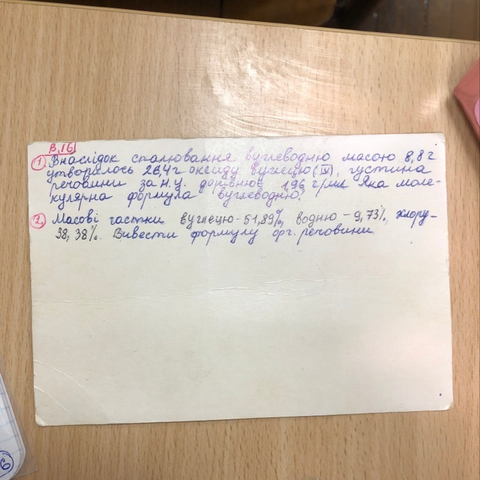 В.16
① Внаслідок спалювання вуглеводню масою 8,8г
утворилось 26,4г оксиду вуглецю (IV), густина
речовини за н.у. дорівнює 1,96 г/мл Яка моле-
кулярна формула вуглеводню?
② Масові частки вуглецю-51,89%, водню-9,73%, хлору-
38,38%. Вивести формулу орг. речовини
9